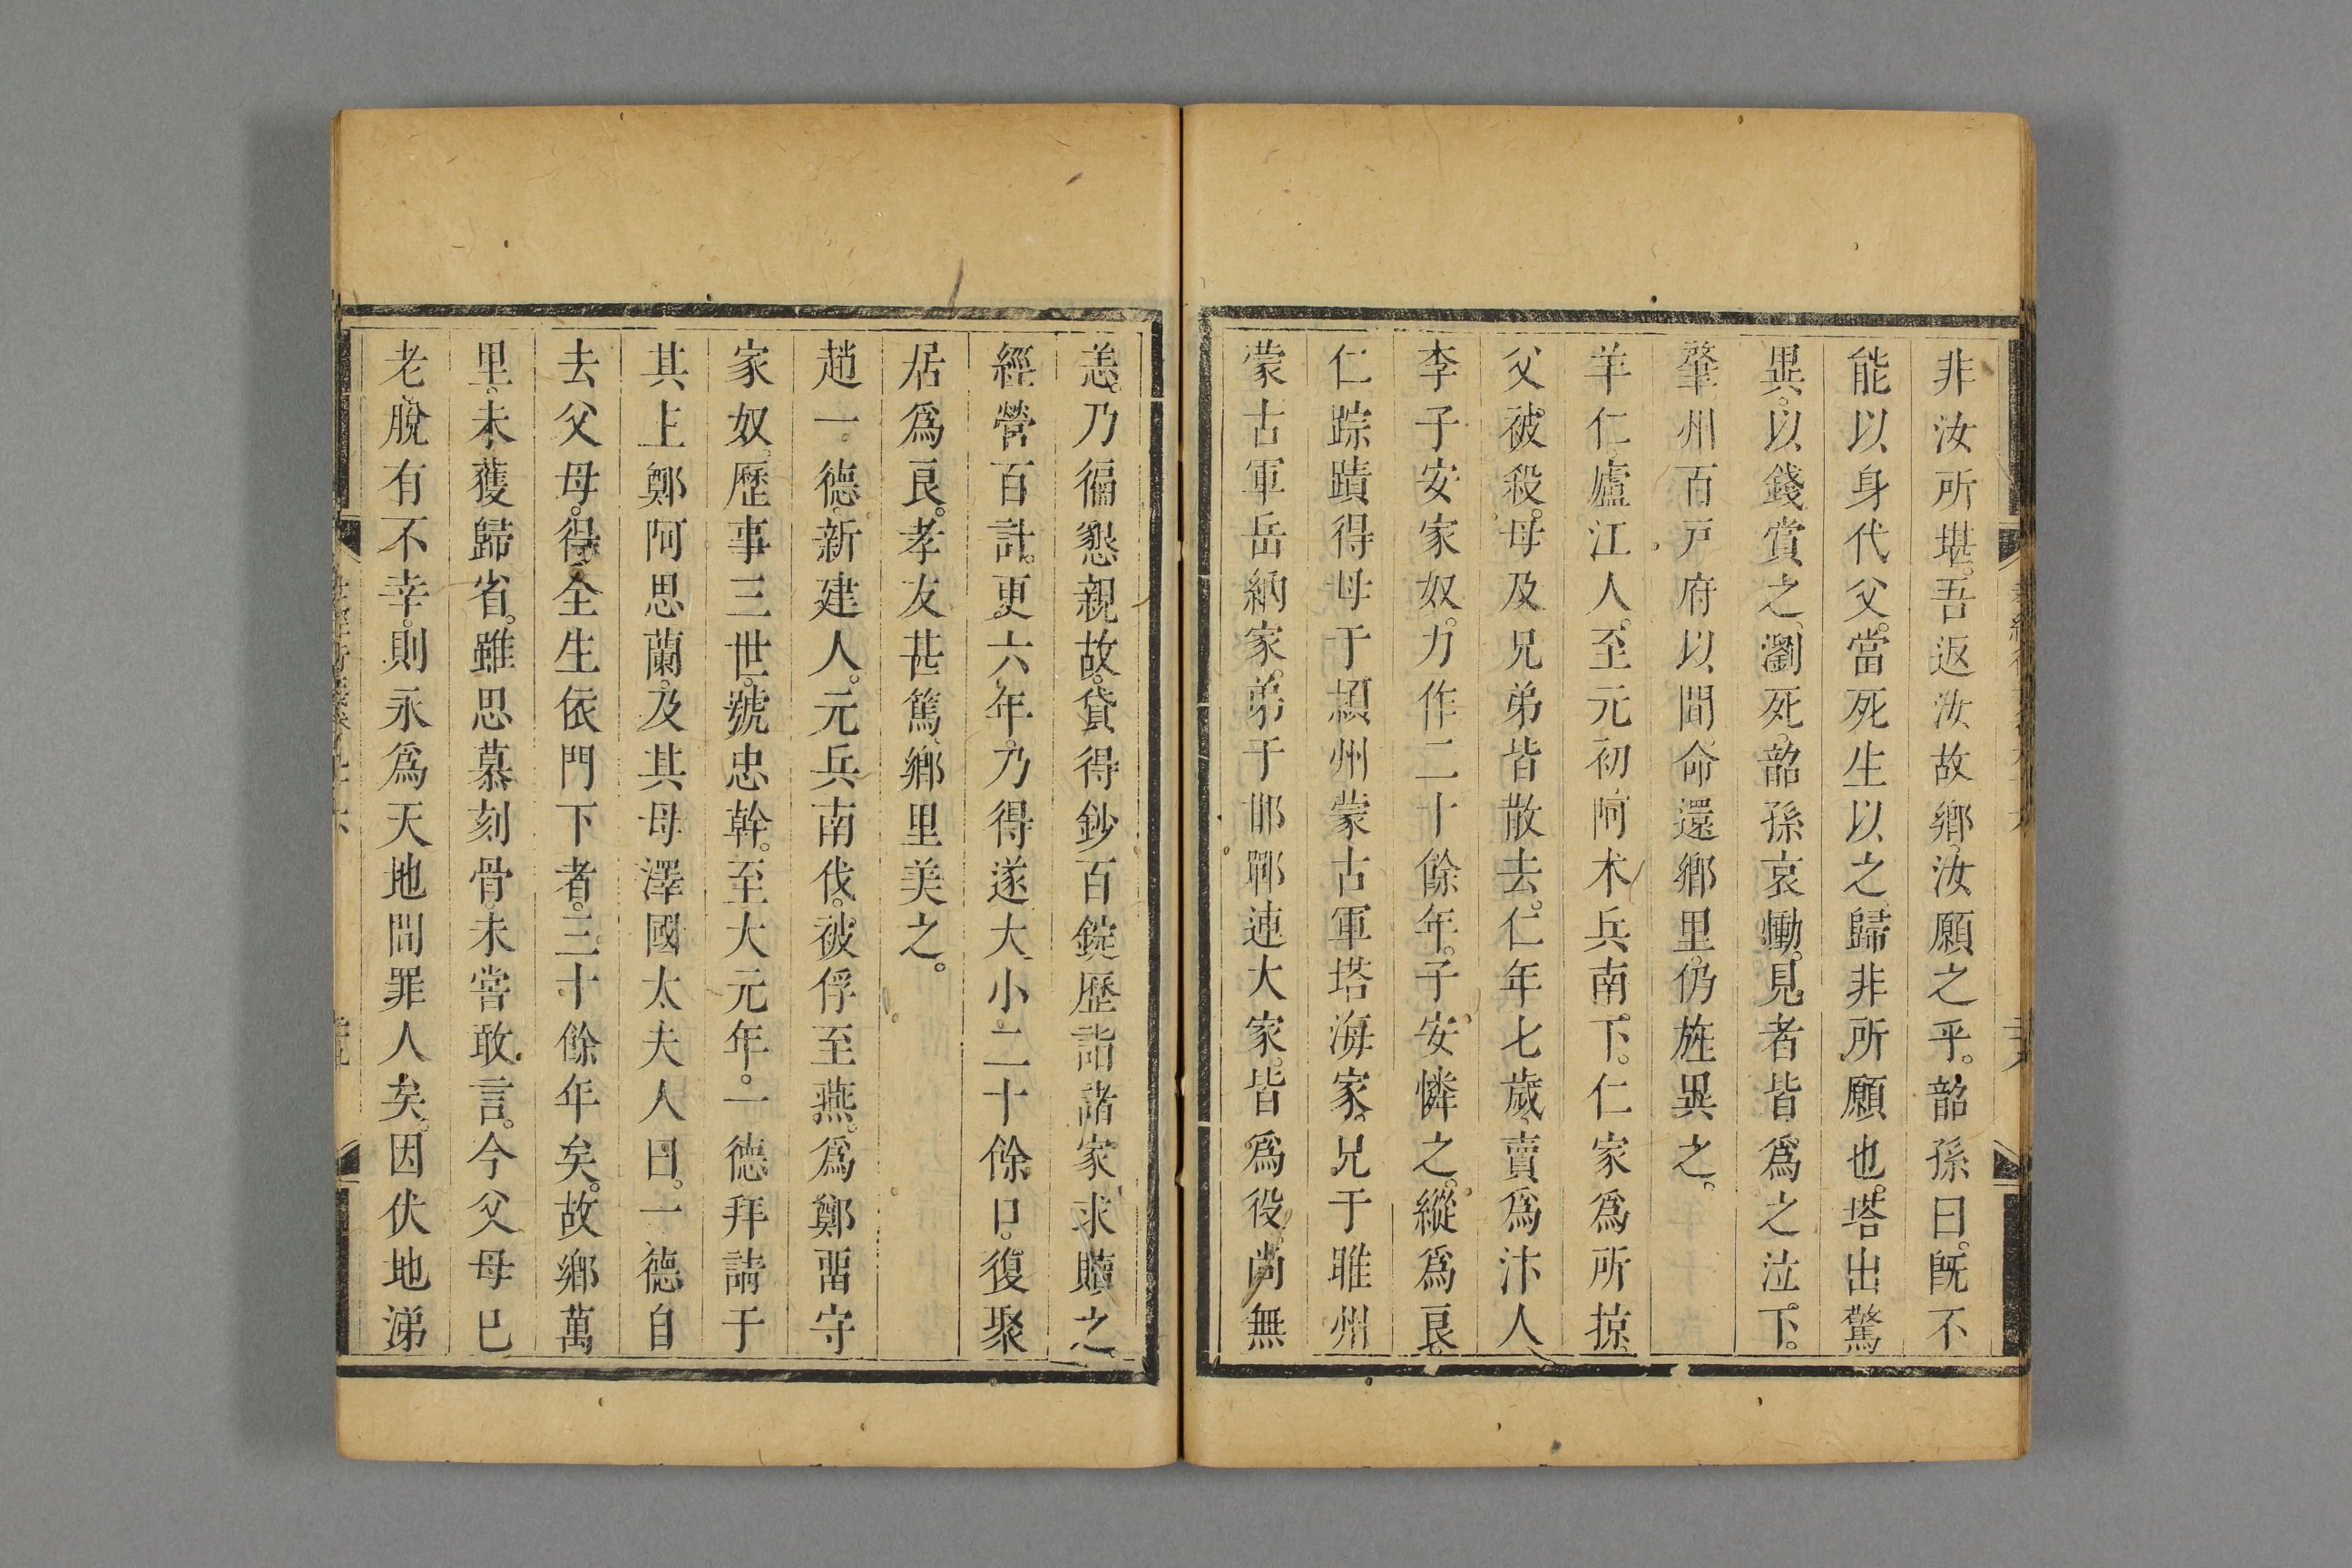 非汝所堪。吾返汝故鄉。汝願之乎。韶孫曰。旣不
能以身代父。當死生以之。歸非所願也。塔出驚
異。以錢賞之。瀏死。韶孫哀慟。見者皆爲之泣下。
肇州百戸府以間。命還鄉里。仍旌異之。
羊仁。廬江人。至元初。阿术兵南下。仁家爲所掠。
父被殺。母及兄弟皆散去。仁年七歲。賣爲汴人
李子安家奴。力作二十餘年。子安憐之。縱爲良。
仁踪蹟得母于頴州蒙古軍塔海家。兄于睢州
蒙古軍岳納家。弟于邯鄲連大家。皆爲役。尚無
恙。乃徧懇親故。貸得鈔百錠。歷詣諸家求贖之。
經營百計。更六年。乃得遂。大小二十餘口。復聚
居爲良。孝友甚篤。鄉里美之。
趙一德。新建人。元兵南伐。被俘至燕。爲鄭畱守
家奴。歷事三世。號忠幹。至大元年。一德拜請于
其上鄭阿思蘭。及其母澤國太夫人曰。一德自
去父母。得全生依門下者。三十餘年矣。故鄉萬
里。未獲歸省。雖思慕刻骨。未嘗敢言。今父母已
老。脫有不幸。則永爲天地間罪人矣。因伏地涕